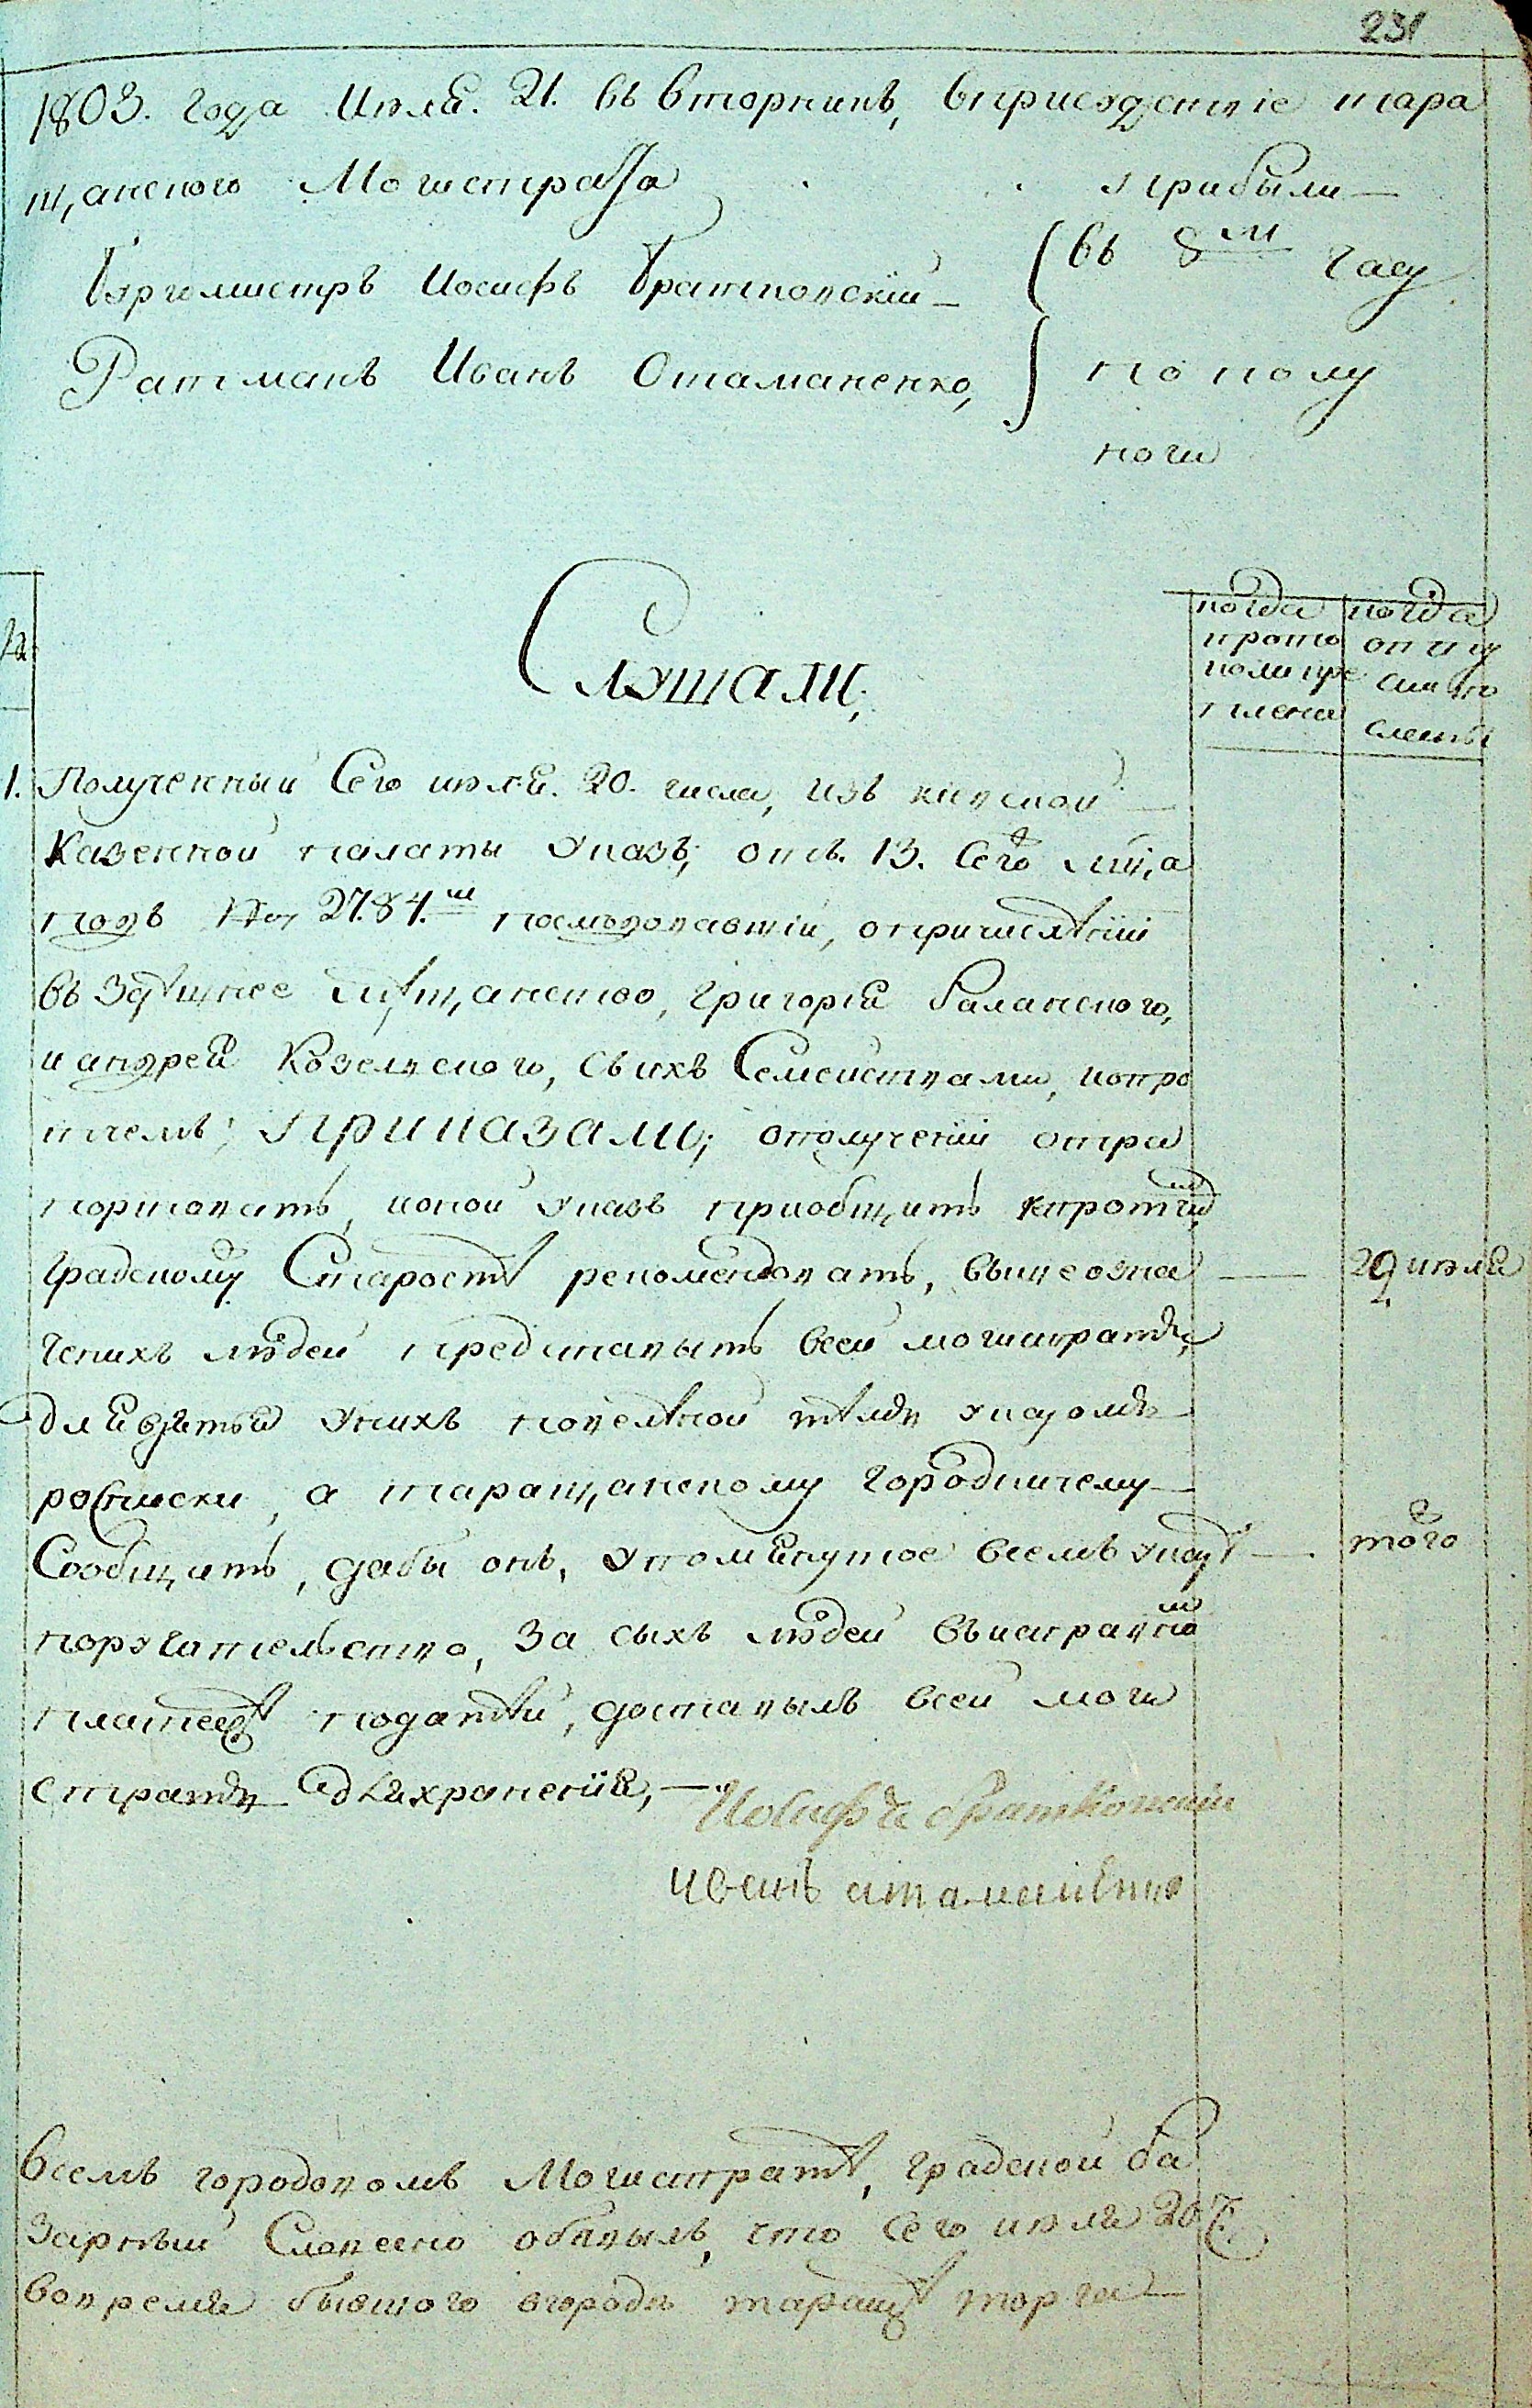 231
1803. года июля. 21. въ вторникъ, вприсудствіе тара
щанского Могистрата прибыли
Бургомистръ Иосифъ Братковскій
въ 8м часу
Ратманъ Иванъ Отаманенко,
по полу
ночи
Слушали;
когда прото коли пре
когда отпу
1. Полученный Сего июля. 20. числа, изъ киевской
Казенной палаты указъ, отъ. 13. Сего мца
подъ No 2784.м последовавшій, опричисленіи
въ здешнее мещанство, григорія баланского,
и андрея Козелского, съ ихъ Семействами, ипро
птчемъ; приказали; ополученіи отра
портовать, ионой указъ приобщить кпротчим
градскому Старосте рекомендовать, вышеозна
29 июля
ченихъ людей представить всей могистратъ,
для взятья унихъ
росписки, а таращанскому городничему
Сообщить, дабы онъ, упомянутое всемъ указе
того
поручительство, за сыхъ людей въисправном
платеже податей, доставилъ всей моги
стратъ для храненія,
Иосифъ братковский
иванъ атаманенко
Всемъ городовомъ Могистрате, градской ба
зарный Словесно объявилъ, что Сего июля 20 ч.
вовремя бывшого вгороде тараще торга